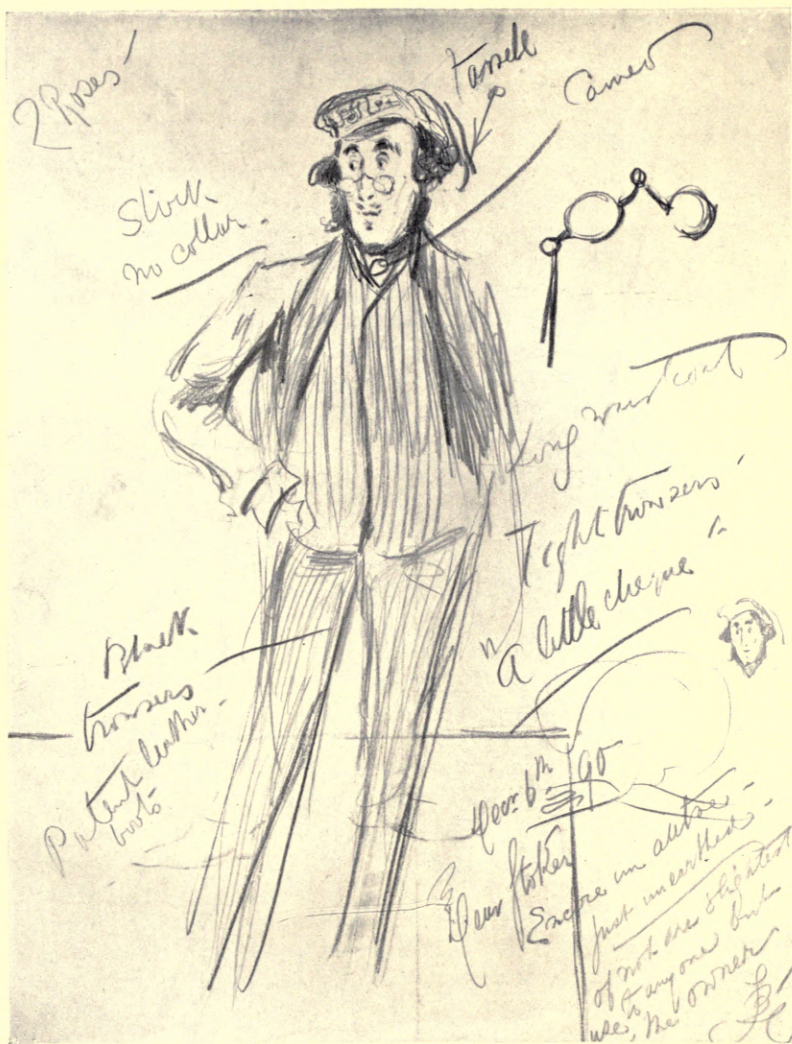 2 Roses
Tassell
Cameo
Stock
no collar
Long waistcoat
Tight trowsers
"A little cheque"
Black
trowsers
Patent leather
boots
Decr 6th 90
Dear Stoker
Encore un autre
just unearthed
of not the slightest
use to anyone but
the owner